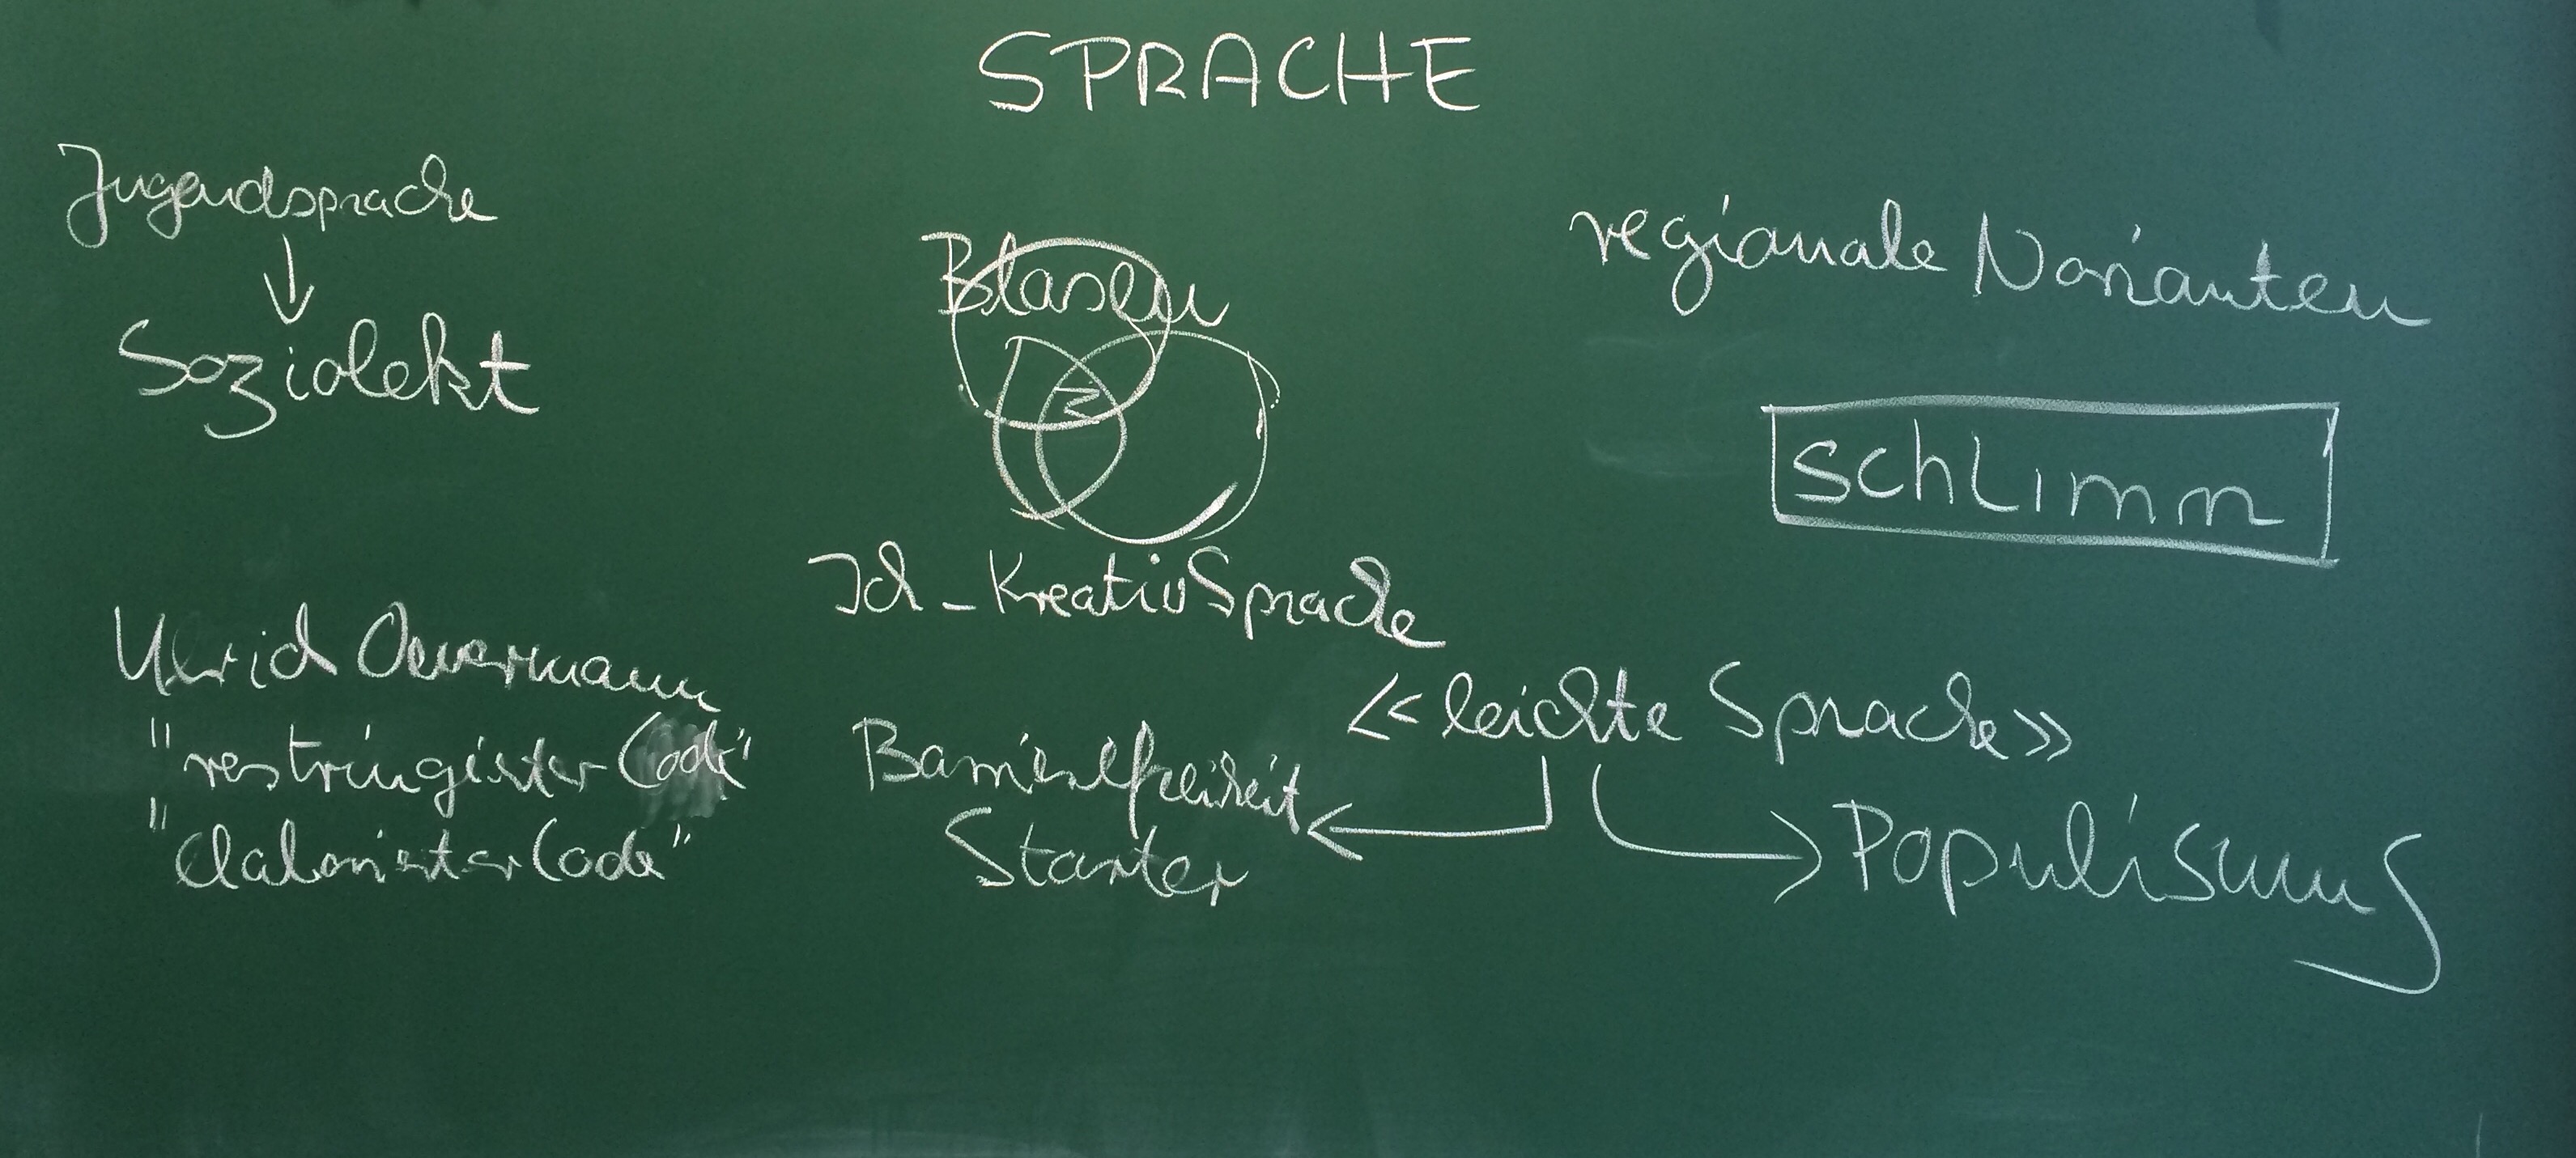 SPRACHE
Jugendsprache
↓
Soziolekt
Blasen
regionale Varianten
schlimm
Ich-KreativSprache
Ulrich Oevermann
"restringierter Code"
"elaborierter Code"
<<leichte Sprache>>
Barrierefreiheit
Starter
Populismus